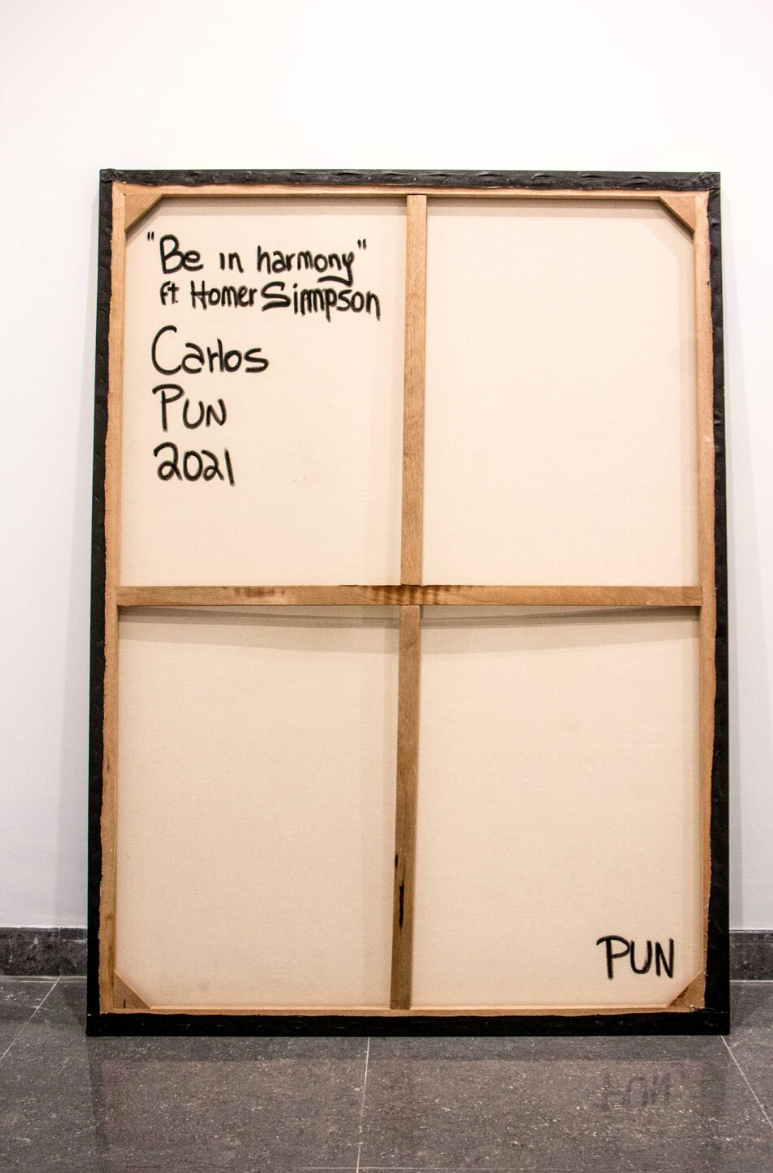 "Be in harmony"
ft Homer Simpson
Carlos
PUN
2021
PUN